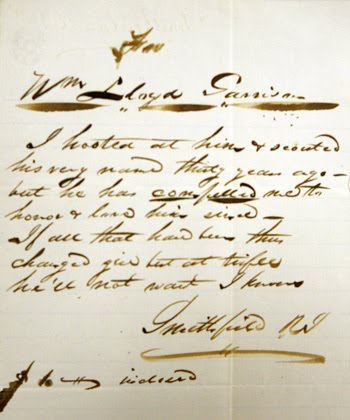 For
Wm Lloyd Garrison
I hooted at him & scouted
his very name thirty years ago -
but he has compelled me to
honor & love him since -
If all that have been thus
changed give but at trifle
he'll not want I know
Smithfield RI
indeed